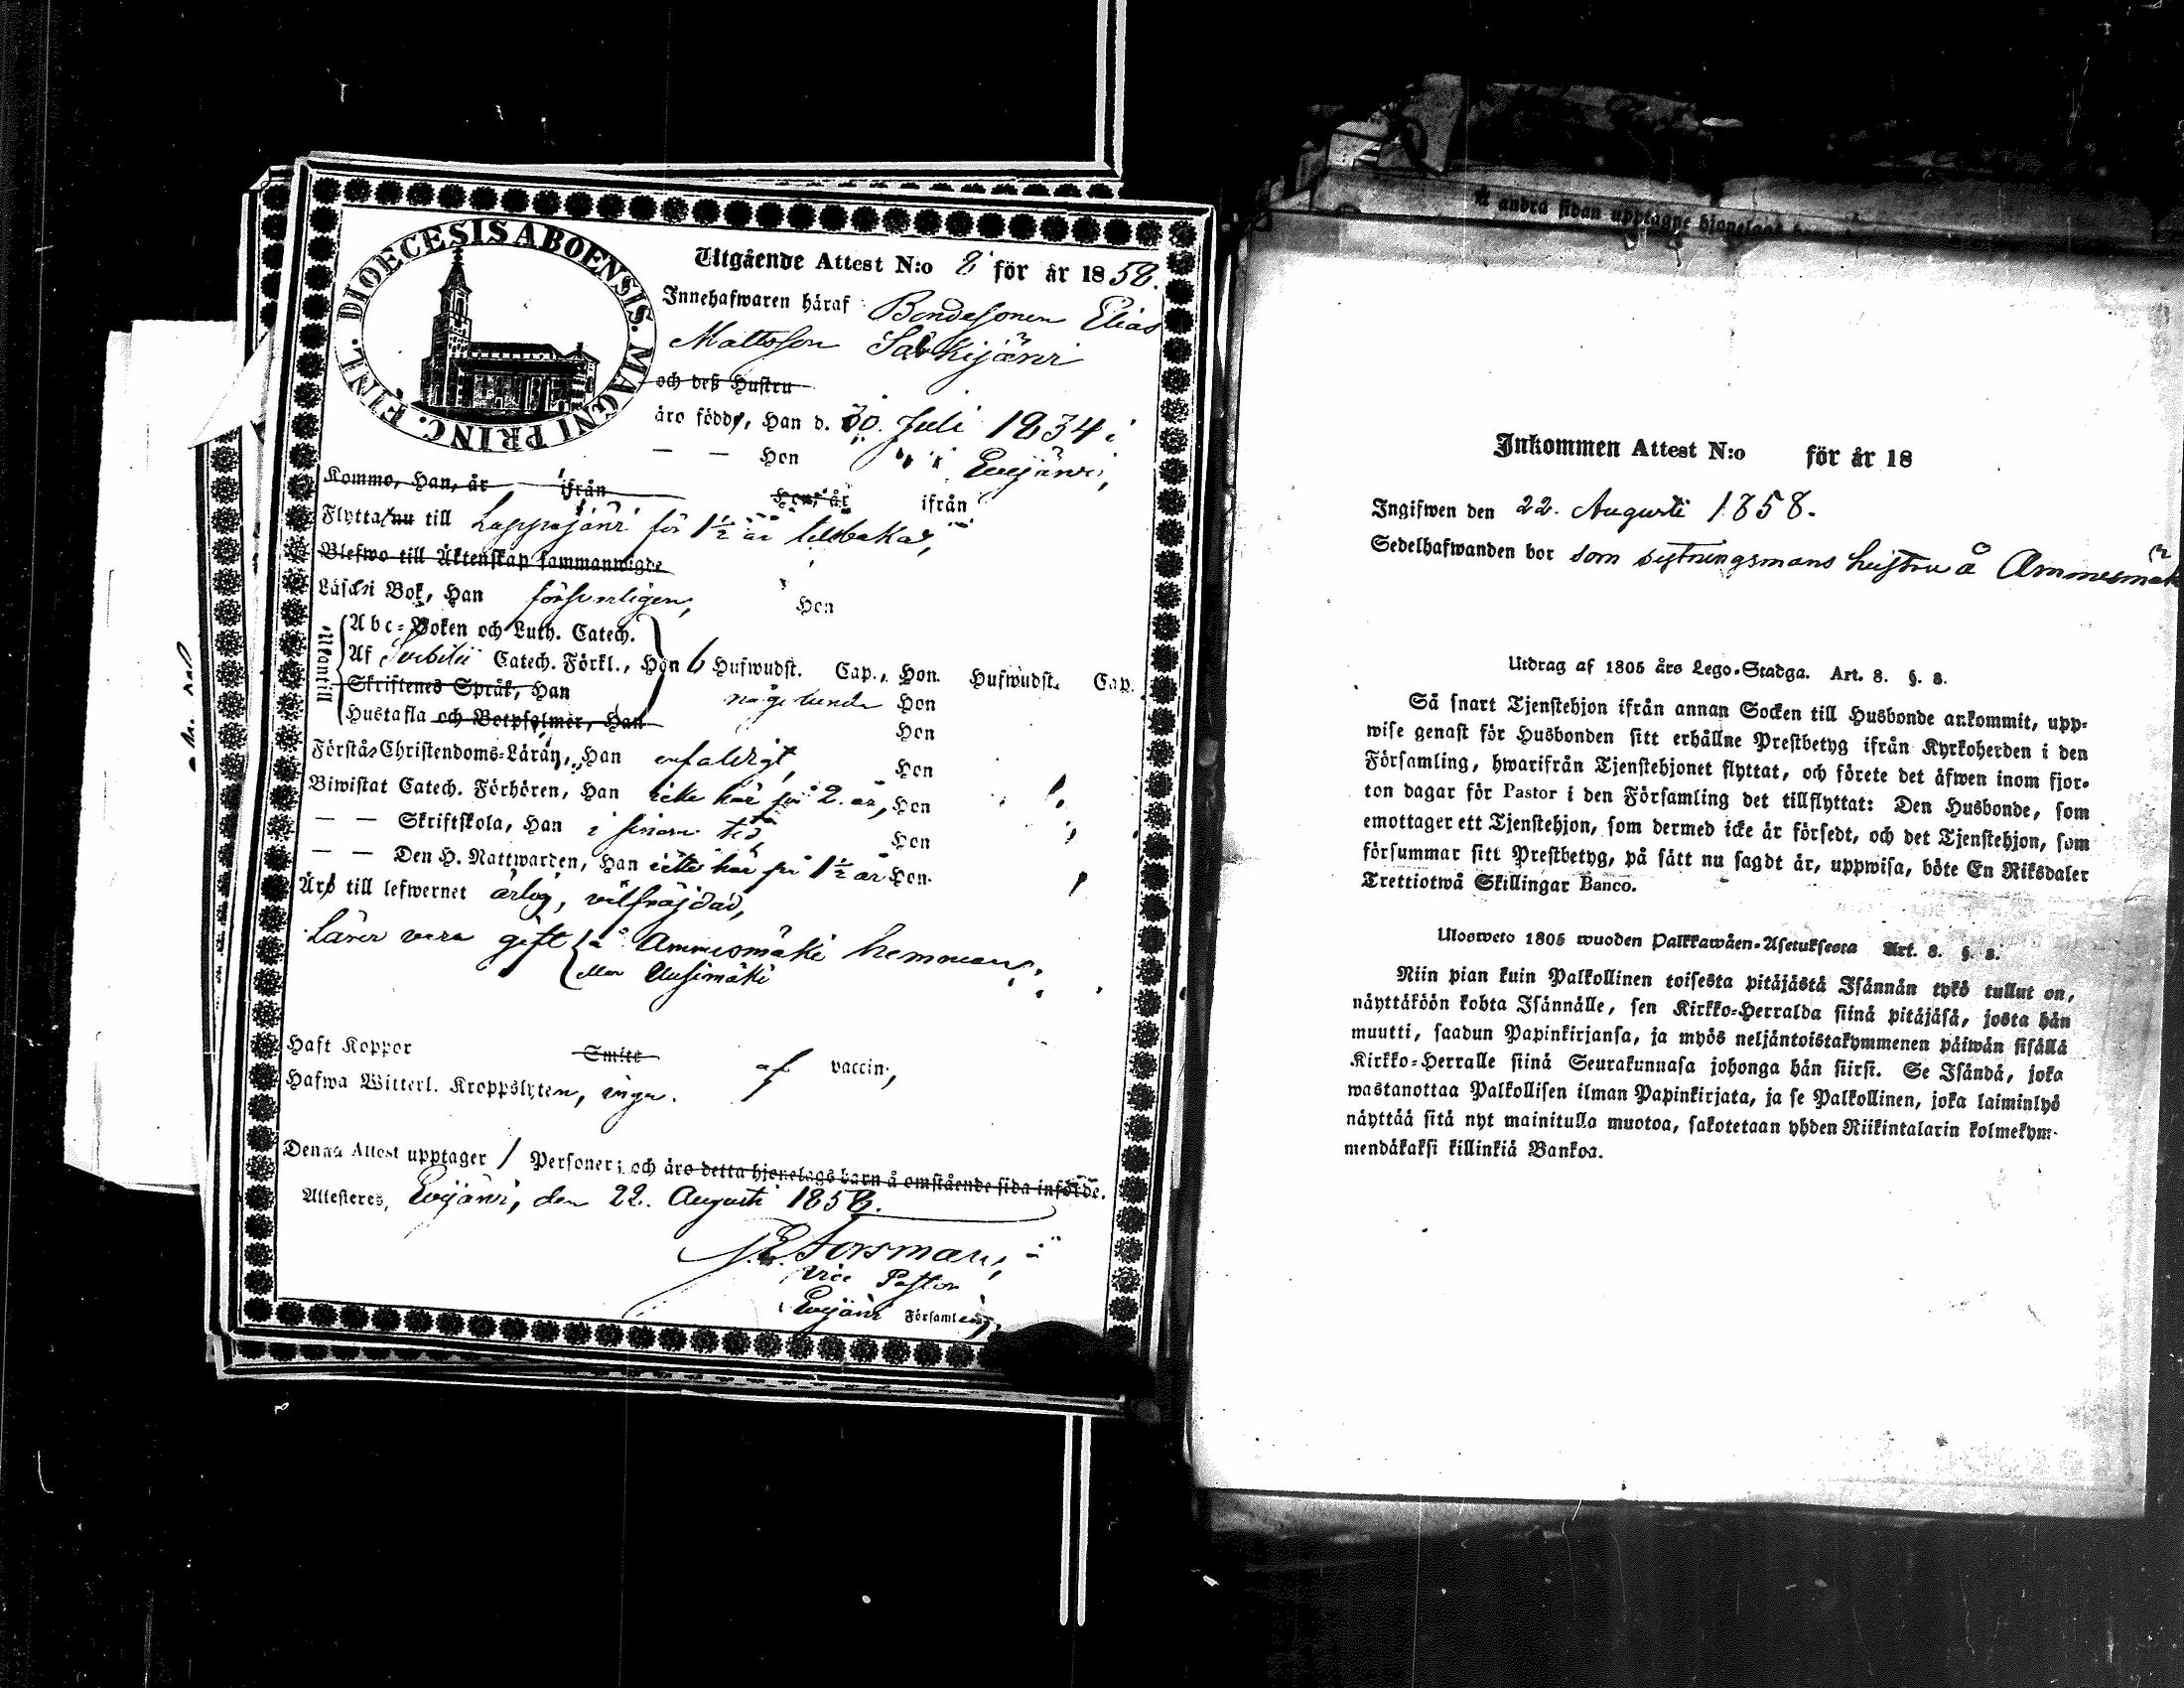 DIOECESIS ABOENSIS. MAGNI PRINC. FINL.
Utgående Attest N:o 8 för år 1858.
Innehafwaren häraf Bondesonen Elias
Mattsson Särkijärvi
och deß Hustru
äro född, Han d. 30. Juli 1834 i
— — Hon Evijärvi,
Kommo, Han, år ifrån Hon, år ifrån
Flytta nu till Lappajärvi för 1½ år tillbaka,
Blefwo till Äktenskap sammanwigde
Läsa i Bok, Han försvarligen, Hon
Utantill
Abc-Boken och Luth. Catech.
Af Svebilii Catech. Förkl., Han 6 Hufwudst. Cap., Hon Hufwudst. Cap.
Skriftenes Språk, Han någorlunda Hon
Hustafla och Botpsalmer, Han Hon
Förstå Christendoms-Läran, Han enfaldigt, Hon
Biwistat Catech. Förhören, Han icke här på 2. år, Hon
— — Skriftskola, Han i sinom tid Hon
— — Den H. Nattwarden, Han icke här på 1½ år Hon
Är till lefwernet ärlig, välfräjdad,
Lärer vara gift å Ammesmäki hemman,
eller Uusimäki
Haft Koppor Smitt af vaccin,
Hafwa Witterl. Kroppslyten, inga.
Denna Attest upptager 1 Personer; och äro detta hjonelags barn å omstående sida införde.
Attesteres, Evijärvi, den 22. Augusti 1858.
Forsman,
vice Pastor
i Evijärvi Församling.
å andra sidan upptagne hjonelags
Inkommen Attest N:o för år 18
Ingifwen den 22. Augusti 1858.
Sedelhafwanden bor som sytningsmans hustru å Ammesmäk
Utdrag af 1805 års Lego-Stadga. Art. 8. §. 8.
Så snart Tjenstehjon ifrån annan Socken till Husbonde ankommit, upp-
wise genast för Husbonden sitt erhållne Prestbetyg ifrån Kyrkoherden i den
Församling, hwarifrån Tjenstehjonet flyttat, och förete det äfwen inom fjor-
ton dagar för Pastor i den Församling det tillflyttat: Den Husbonde, som
emottager ett Tjenstehjon, som dermed icke är försedt, och det Tjenstehjon, som
försummar sitt Prestbetyg, på sätt nu sagdt är, uppwisa, böte En Riksdaler
Trettiotwå Skillingar Banco.
Ulosweto 1805 wuoden Palkkawäen-Asetuksesta Art. 8. §. 8.
Niin pian kuin Palkollinen toisesta pitäjästä Isännän tykö tullut on,
näyttäköön kohta Isännälle, sen Kirkko-Herralda siinä pitäjäsä, josta hän
muutti, saadun Papinkirjansa, ja myös neljäntoistakymmenen päiwän sisällä
Kirkko-Herralle siinä Seurakunnasa johonga hän siirsi. Se Isändä, joka
wastanottaa Palkollisen ilman Papinkirjata, ja se Palkollinen, joka laiminlyö
näyttää sitä nyt mainitulla muotoa, sakotetaan yhden Riikintalarin kolmekym-
mendäkaksi killinkiä Bankoa.